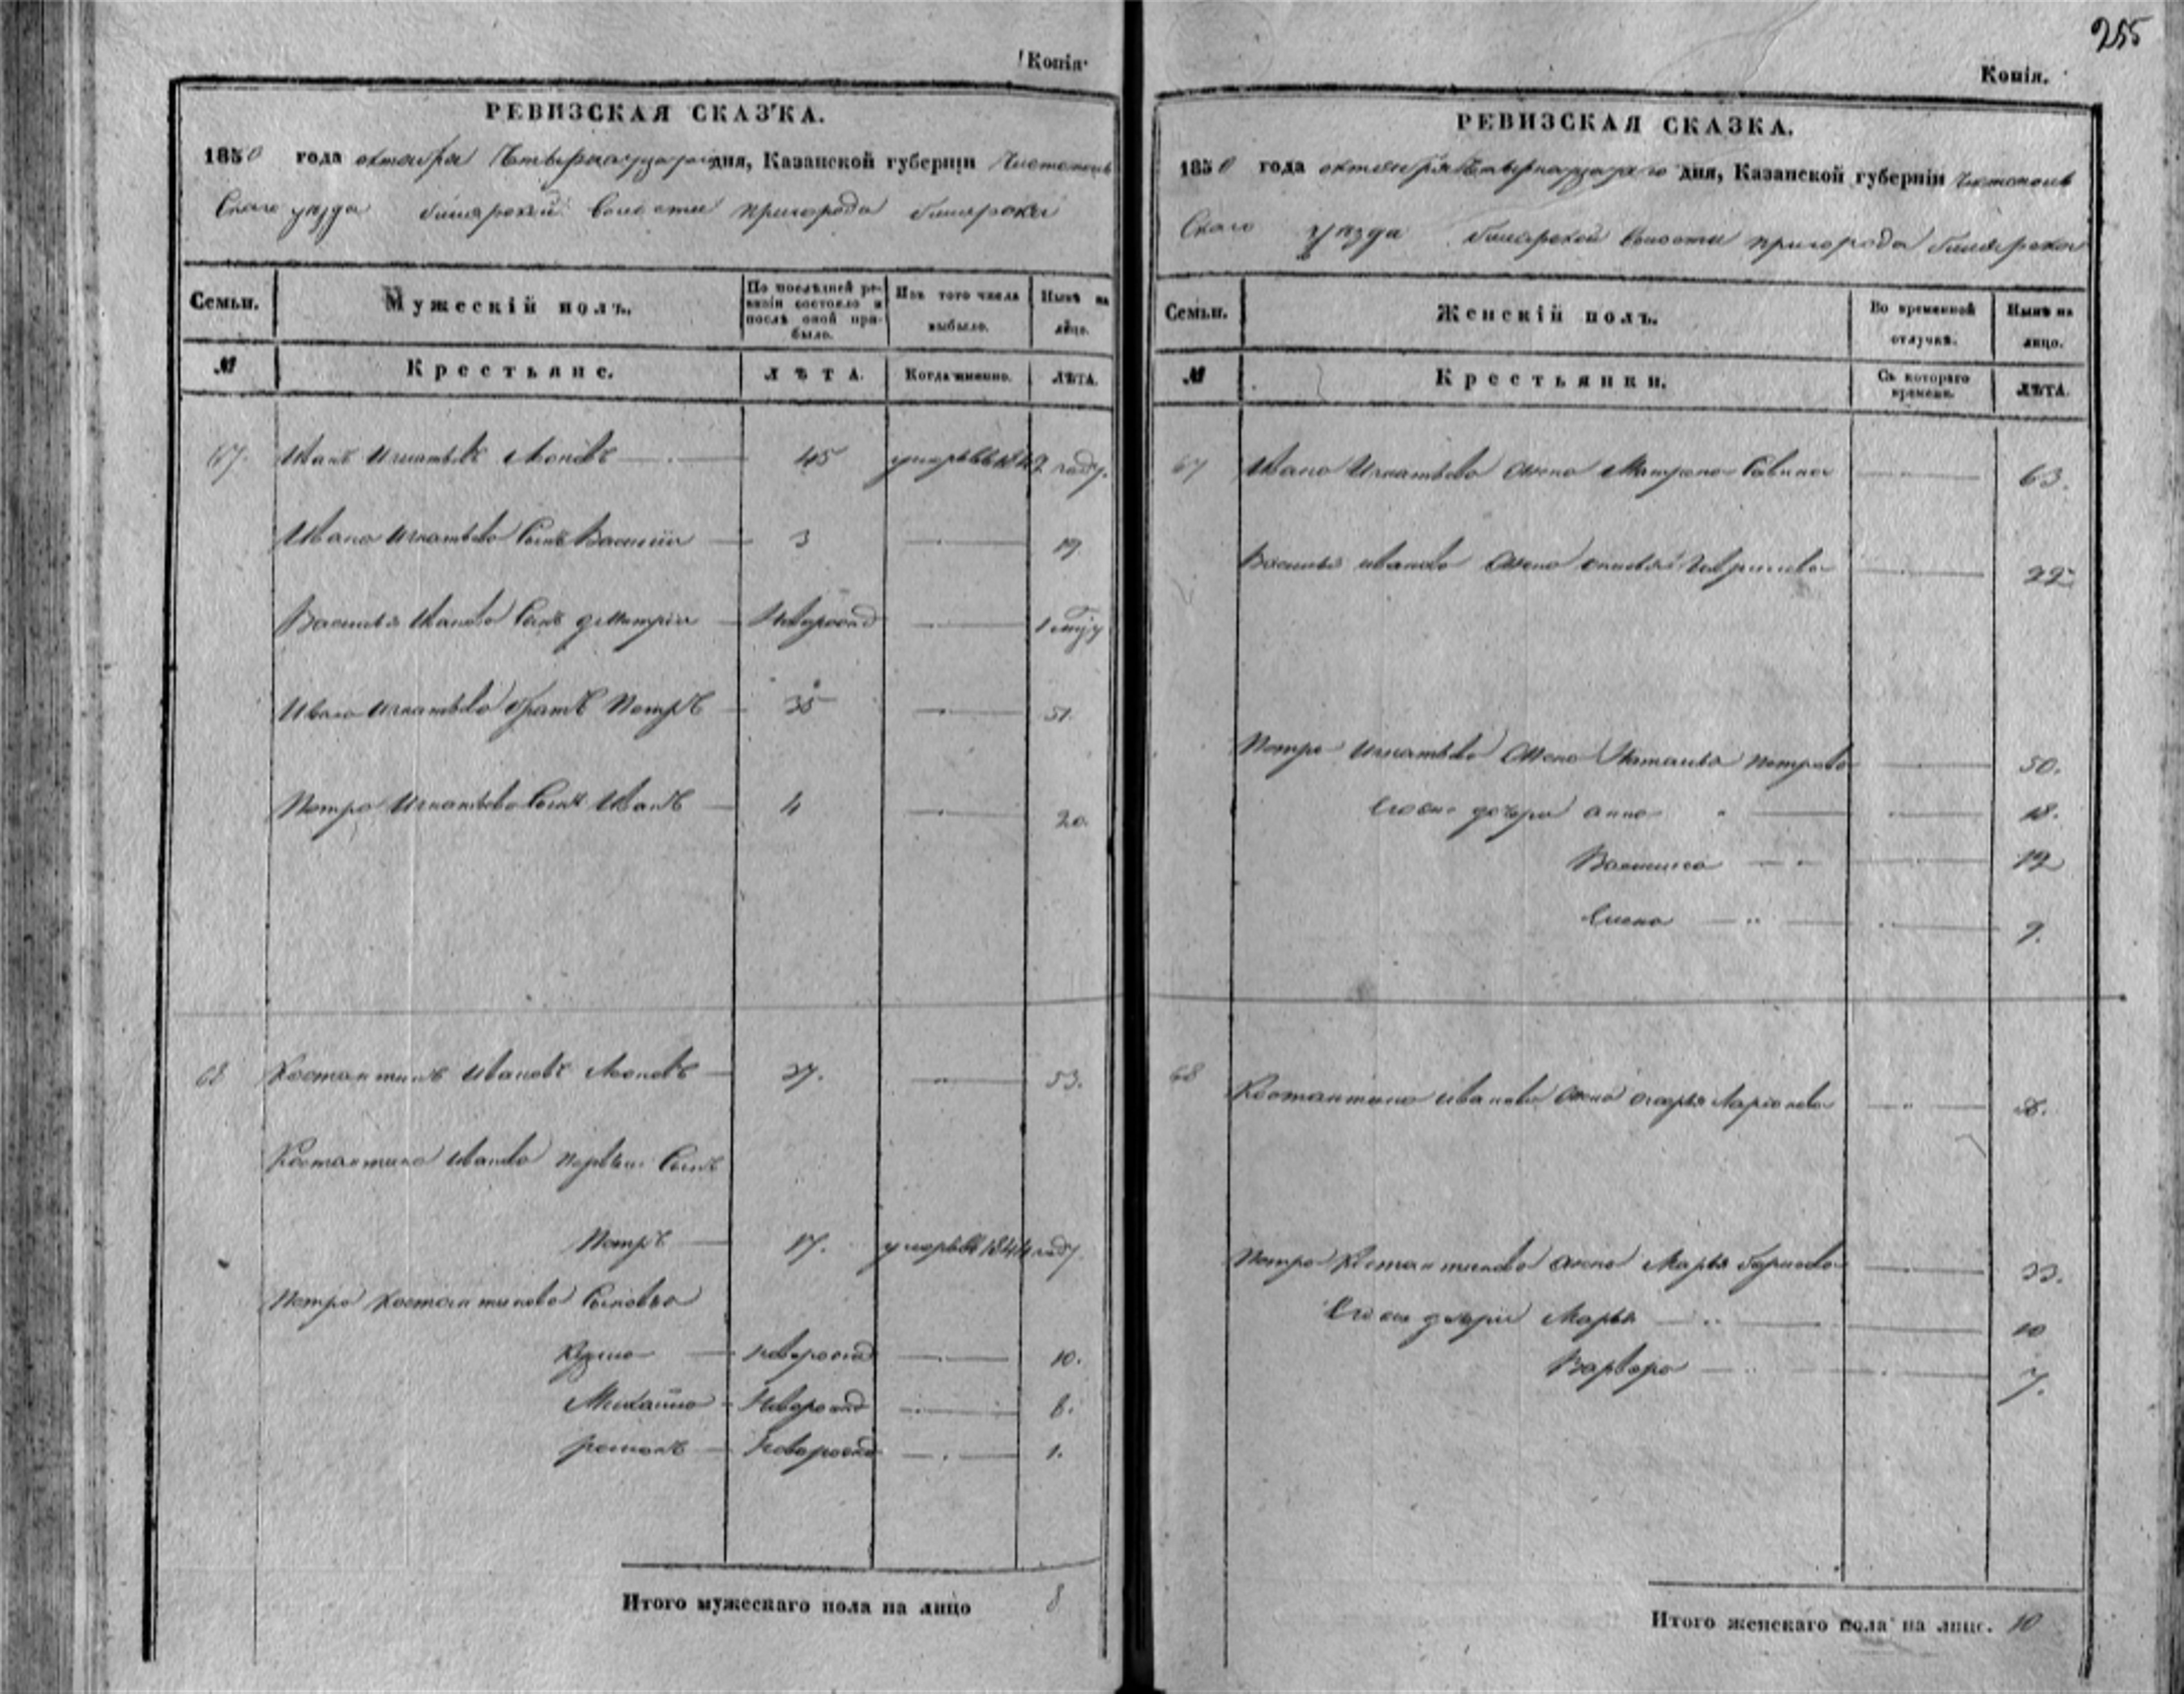 255
Копія.
РЕВИЗСКАЯ СКАЗКА.
1850 года октября Четырнадцатаго дня, Казанской губерніи Чистополь
Скаго уѣзда билярской Волости пригорода билярска
Семьи.
Мужескій полъ.
По послѣдней ре-
визіи состояло и
послѣ оной при-
было.
Изъ того числа
выбыло.
Нынѣ на
лицо.
№
Крестьяне.
ЛѢТА.
Когда именно.
ЛѢТА.
67. Иванъ Игнатьевъ 45 умеръ въ 1847 году.
Ивана Игнатьева Сынъ Василий 3 19
Василья Иванова Сынъ дмитрий Новорожд
Ивана Игнатьева братъ Петръ 35 51.
Петра Игнатьева Сынъ Иванъ 4 20.
68 Костантинъ Ивановъ 37. 53.
Костантина Иванова первый Сынъ
Петръ 17. умеръ въ 1844 году
Петра Костантинова Сыновья
Кузма новорожд 10.
Михайло Новорожд 6.
романъ Новорожд 1.
Итого мужескаго пола на лицо 8
Копія.
РЕВИЗСКАЯ СКАЗКА.
1850 года октября Четырнадцатаго дня, Казанской губерніи Чистополь
Скаго уѣзда билярской Волости пригорода билярска
Семьи.
Женскій полъ.
Во временной
отлучкѣ.
Нынѣ на
лицо.
№
Крестьянки.
Съ котораго
времени.
ЛѢТА.
67 Ивана Игнатьева жена Матрена Савина 63.
Василья иванова жена Гаврилова 22
Петра Игнатьева жена Наталья петрова 50.
Его дочери анна 18.
Василиса 12
Елена 9.
68 Костантина иванова жена Ларіонова
Петра Костантинова жена Марья 33.
Его дочери Марья 10
Варвара 7.
Итого женскаго пола на лицо. 10